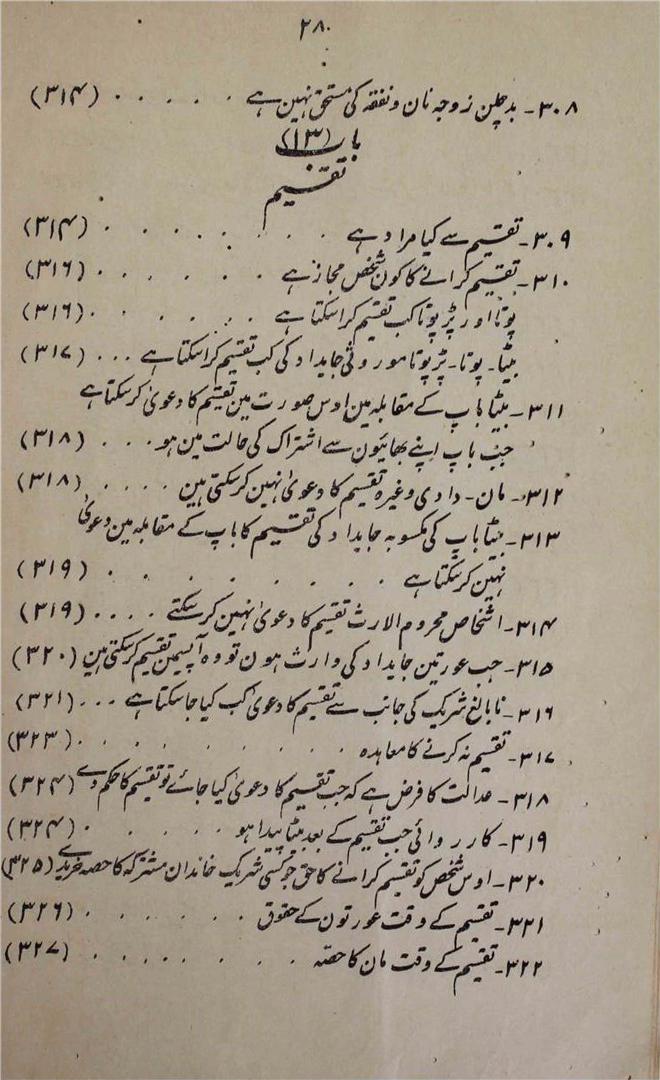 ۲۸۰
۳۰۸۔ بدچلن زوجہ نان و نفقہ کی مستحق نہین ہے . . . . . (۳۱۴)
باب (۱۳)
تقسیم
۳۰۹۔ تقسیم سے کیا مراد ہے . . . . . . . . (۳۱۴)
۳۱۰۔ تقسیم کرانے کا کون شخص مجاز ہے . . . . . . (۳۱۶)
پوتا اور پڑپوتا کب تقسیم کرا سکتا ہے . . . . . . (۳۱۶)
بیٹا۔ پوتا۔ پڑپوتا موروثی جایداد کی کب تقسیم کرا سکتا ہے . . . (۳۱۷)
۳۱۱۔ بیٹا باپ کے مقابلہ مین اوس صورت مین تقسیم کا دعویٰ کر سکتا ہے
جب باپ اپنے بھائیون سے اشتراک کی حالت مین ہو . . . (۳۱۸)
۳۱۲۔ مان۔ دادی وغیرہ تقسیم کا دعویٰ نہین کر سکتی ہین . . . . (۳۱۸)
۳۱۳۔ بیٹا باپ کی مکسوبہ جایداد کی تقسیم کا باپ کے مقابلہ مین دعویٰ
نہین کر سکتا ہے . . . . . . . . . (۳۱۹)
۳۱۴۔ اشخاص محروم الارث تقسیم کا دعویٰ نہین کر سکتے . . . . (۳۱۹)
۳۱۵۔ جب عورتین جایداد کی وارث ہون تو وہ آپسمین تقسیم کر سکتی ہین (۳۲۰)
۳۱۶۔ نابالغ شریک کی جانب سے تقسیم کا دعویٰ کب کیا جا سکتا ہے . . . (۳۲۱)
۳۱۷۔ تقسیم نہ کرنے کا معاہدہ . . . . . . . . . (۳۲۳)
۳۱۸۔ عدالت کا فرض ہے کہ جب تقسیم کا دعویٰ کیا جائے تو تقسیم کا حکم دے (۳۲۴)
۳۱۹۔ کارروائی جب تقسیم کے بعد بیٹا پیدا ہو . . . . . . (۳۲۴)
۳۲۰۔ اوس شخص کو تقسیم کرانے کا حق جو کسی شریک خاندان مشترکہ کا حصہ خریدے (۳۲۵)
۳۲۱۔ تقسیم کے وقت عورتون کے حقوق . . . . . . . (۳۲۶)
۳۲۲۔ تقسیم کے وقت مان کا حصّہ . . . . . . . . (۳۲۷)